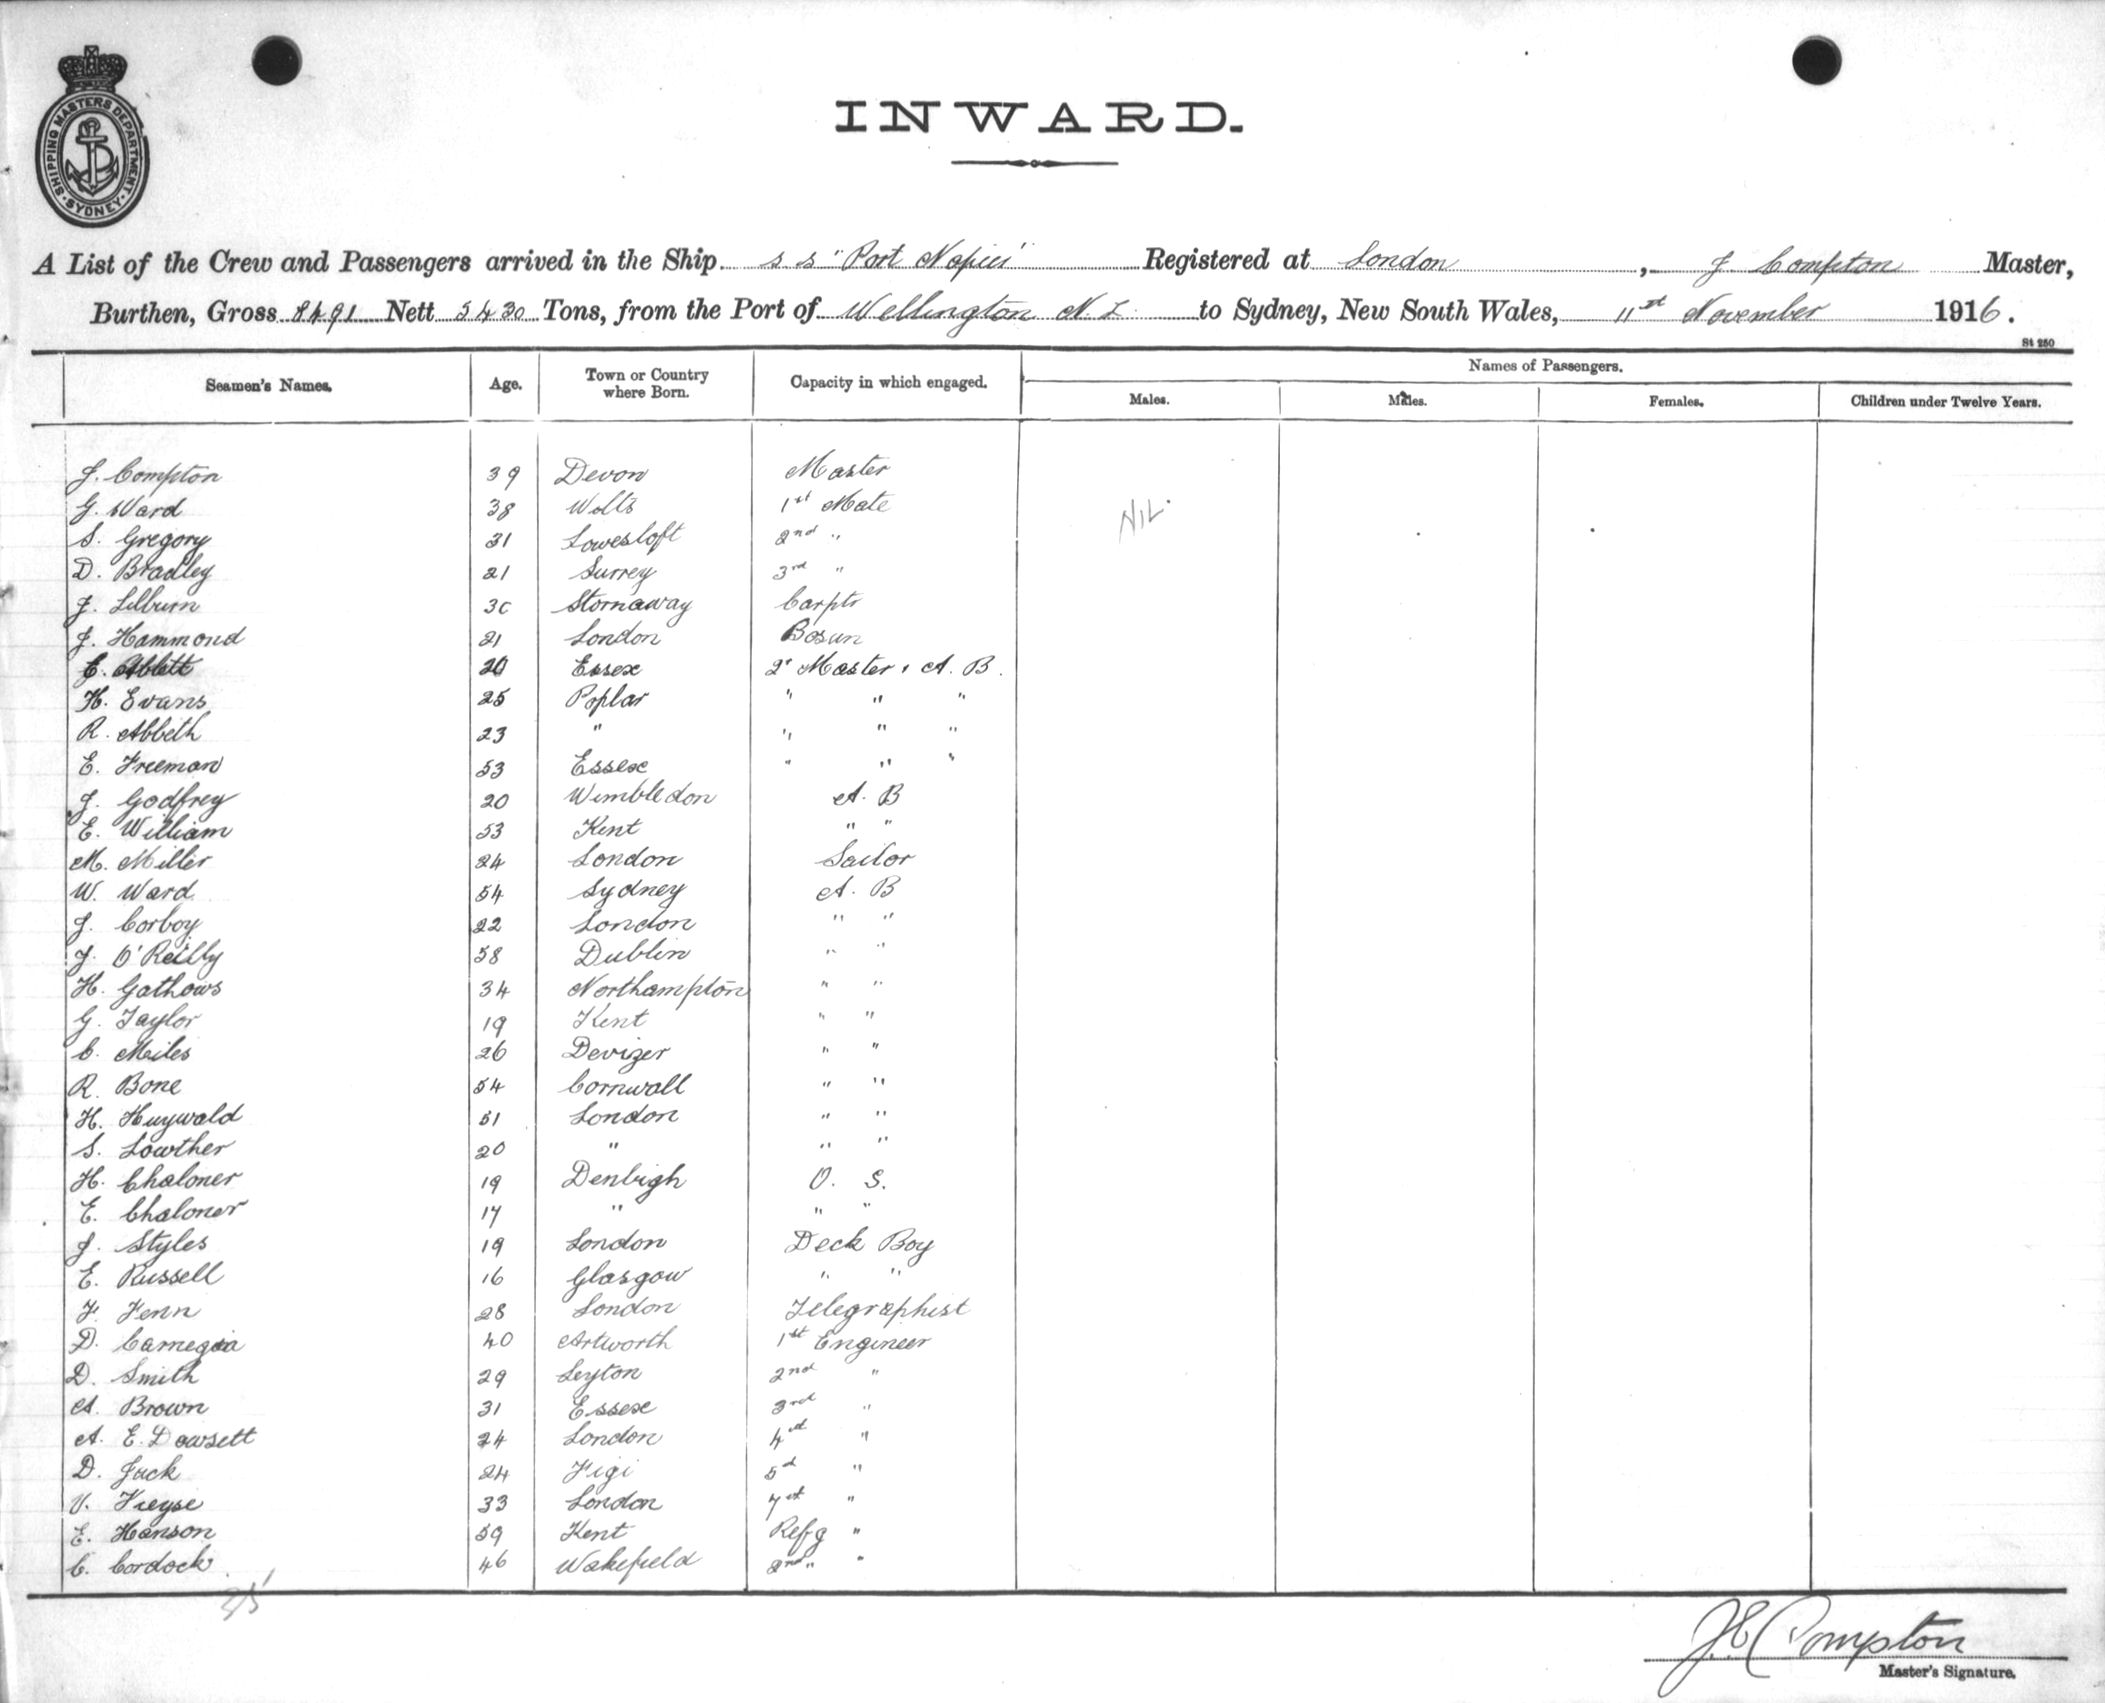 SHIPPING MASTERS DEPARTMENT · SYDNEY ·
INWARD.
A List of the Crew and Passengers arrived in the Ship S S "Port Napier" Registered at London, J Compton Master,
Burthen, Gross 8491 Nett 5430 Tons, from the Port of Wellington N.Z. to Sydney, New South Wales, 11st November 1916.
St 250
Seamen's Names. Age. Town or Country where Born. Capacity in which engaged. Names of Passengers.
Males. Males. Females. Children under Twelve Years.
J. Compton 39 Devon Master
G. Ward 38 Wilts 1st Mate
NIL.
S. Gregory 31 Lowestoft 2nd "
D. Bradley 21 Surrey 3rd "
J. Lilburn 30 Stornaway Carptr
J. Hammond 21 London Bosun
C. Abbett 20 Essex 2r Master & A. B.
H. Evans 25 Poplar " " "
R. Abbeth 23 " " " "
E. Freeman 53 Essex " " "
J. Godfrey 20 Wimbledon A. B
E. William 53 Kent " "
M. Miller 24 London Sailor
W. Ward 54 Sydney A. B
J. Corboy 22 London " "
J. O'Reilly 58 Dublin " "
H. Gathows 34 Northampton " "
G. Taylor 19 Kent " "
C. Miles 26 Devizer " "
R. Bone 54 Cornwall " "
H. Huywald 51 London " "
S. Lowther 20 " " "
H. Chaloner 19 Denbigh O. S.
E. Chaloner 17 " " "
J. Styles 19 London Deck Boy
E. Russell 16 Glasgow " "
F. Fenn 28 London Telegraphist
D. Carnegia 40 Artworth 1st Engineer
D. Smith 29 Leyton 2nd "
A. Brown 31 Essex 3rd "
A. E. Dowsett 24 London 4th "
D. Jack 24 Figi 5th "
V. 33 London 7th "
E. Hanson 59 Kent Refg "
C. Cordock 46 Wakefield 2nd " "
35
J E Compton
Master's Signature.